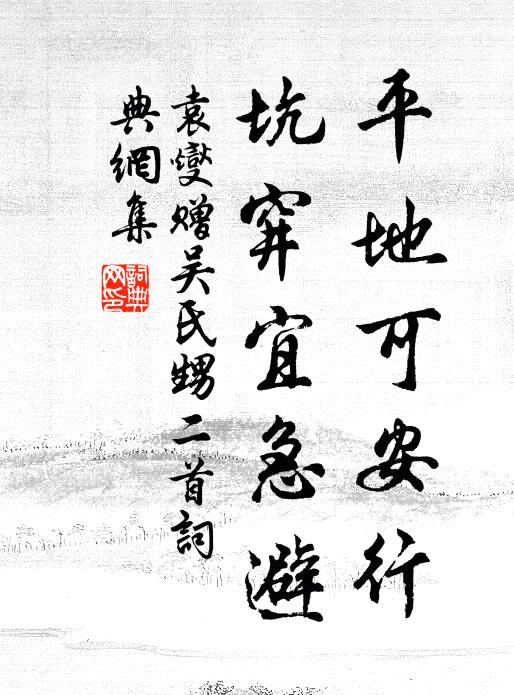 平地可安行
坑穽宜急避
袁燮贈吴民甥二首詞
典網集
詞典
网印